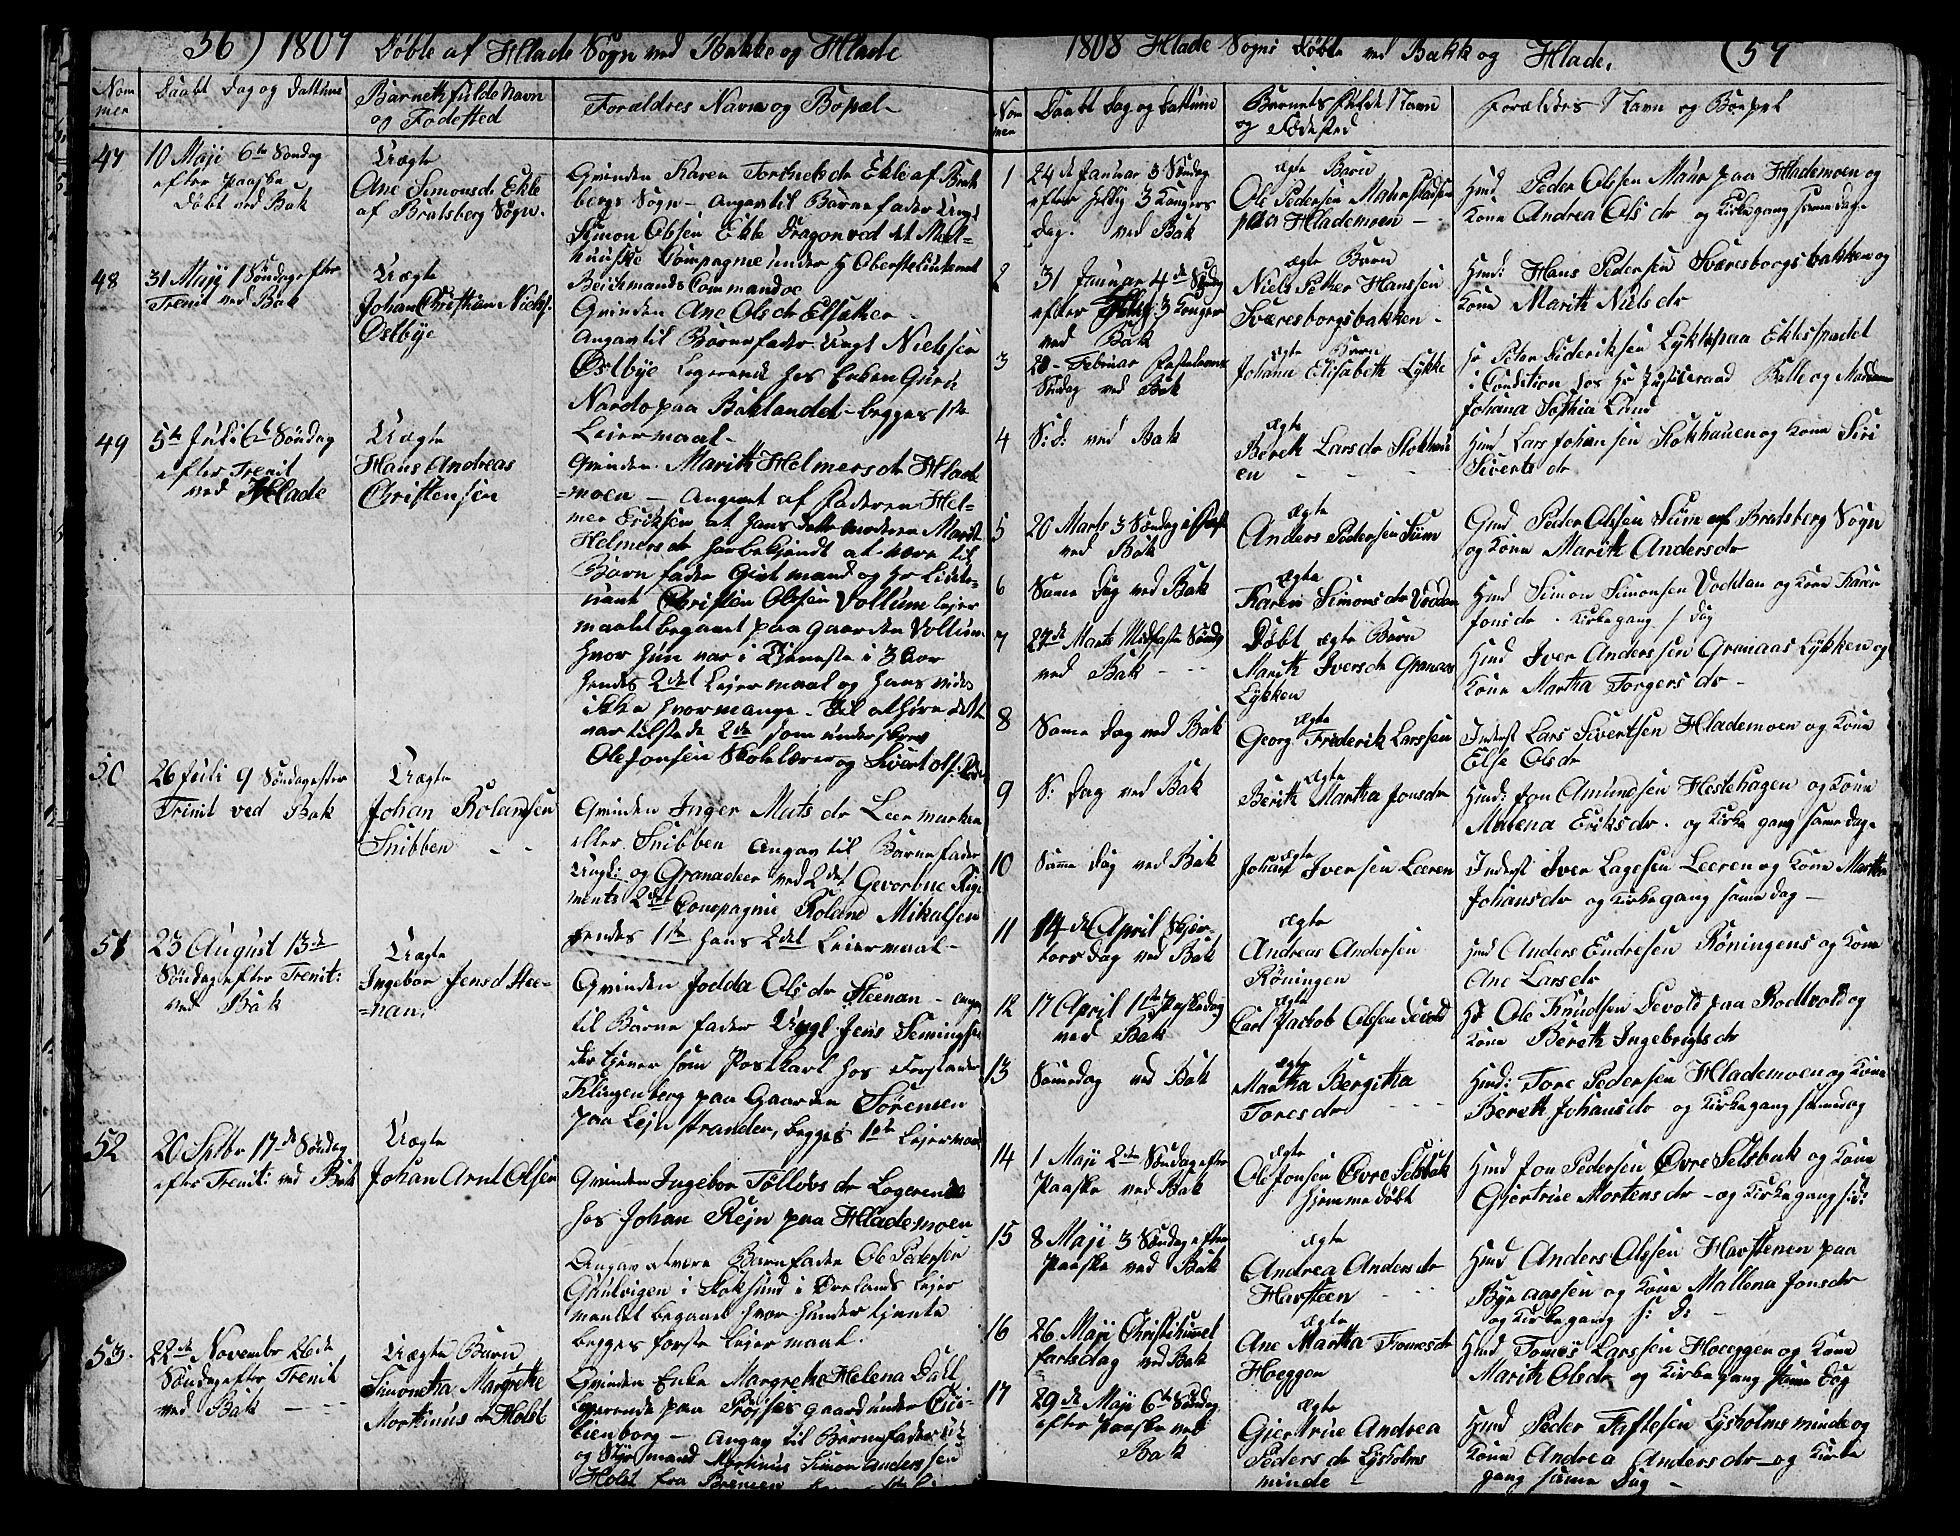 56) 1807 Døbte af Hlade Sogn ved Bakke og Hlade
Nom
mer
Daabt Dag og Dathum
Barnets fulde Navn
og Fødested
Forældres Navn og Bopæl
47
10 Maji 6te Søndag
efter Paaske
Døbt ved Bak
Uægte
Ane Simonsdr Ekle
af Bratsberg Sogn.
Qvinden Karen Torkels dr Ekle af Brats
bergs Sogn - Angav til Barnefader Ungk
Simon Olsen Ekle Dragon ved det Meel-
huuske Compagnie under H Oberstlieutenant
Beichmands Commandoe
48
31 Maji 1 Søndag efter
Trenit ved Bak
Uægte
Johan Christian Niels.
Østbye
Qvinden Ane Ols dr Elsæther -
Angav til Barnefader Ungk Niels
Østbye Logerende hos Enken Guru
Nardo paa Baklandet - begges 1ste
Leiermaal -
49
5te Juli 6te Søndag
efter Trenit
ved Hlade
Uægte
Hans Andreas
Christensen
Qvinden Marith Helmers dr Hlade
=moen - Angivet af Faderen Hel-
mer Eriksen at hans datter moderen Marit
Helmers dr har bekjendt at være til
Barnfader Givt mand og Hr Liete-
nant Christen Olsen Vollum Leier
maalet begaaet paa Gaarden Vollum
hvor hun var i Tjeneste i 3 Aar
hendes 2det Leiermaal og hans vides
ikke hvormange. Til at høre dette
var tilstede 2de som underskrev
Ole Jonsen Skolelærer og Sivert Ols.
50
26 Juli 9 Søndag efter
Trinit ved Bak
Uægte
Johan Rolandsen
Snibben - -
Qvinden Inger Mats dr Leermarken
eller Snibben Angav til Barnefader
Ungk: og Granadeer ved 2det Gevorbne Regi
ments 2det Compagnie Roland Mikalsen
hendes 1ste hans 2det Leiermaal -
51
23 August 13de
Søndag efter Trenit:
ved Bak
Uægte
Ingebor Jensd Stee-
=nan.
Qvinden Jodda Ols dr Steenan - Angav
til Barnefader Ungk Jens Semingsen
der tjener som Postkarl hos Forstander
Klingenberg paa Gaarden Sørensen
paa Lejnstranden, begges 1ste Leiermaal
52
20 Septbr 17de Søndag
efter Trenit: ved Bak
Uægte
Johan Arnt Olsen
Qvinden Ingebor Tollovs dr Logerende
hos Johan Rejn paa Hlademoen
Angav at være Barnfader Ole Pedersen
i Stoksund i Ørelands Leier
maalet begaaet hvor hun der tjente
begges første Leiermaal.
53.
22de Novembr 26de
Søndag efter Trenit
ved Bak - - -
Uægte Barn
Simonetha Margrethe
Mortinus dr Holst
Qvinden Enke Margrethe Helena Dall
Logerende paa Prøjses gaard under Cici-
lienborg - Angav til Barnefader Uk
og Styrmand Mortinus Simon Anderssen
Holst fra
1808 Hlade Sogns Døbte ved Bakk og Hlade. (57
Nom
mer
Daabt Dag og Dathum
Barnets fulde Navn
og Fødested
Forældres Navn og Bopæl
1
24de Januar 3 Søndag
efter Hellig 3 Kongers
Dag. ved Bak
ægte Barn
Ole Pedersen Muhr
paa Hlademoen -
Hmd Peder Olsen Muhr paa Hlademoen og
Kone Andrea Ols dr og Kirkegang samme Dag
2
31 Januar 4de Søndag
efter Hellig 3 Konger
ved Bak
ægte Barn
Niels Peter Hanssen
Sværesborgsbakken -
Hmd: Hans Pedersen Sværesborgsbakken og
Kone Marith Niels dr
3
28 Februar Fastelavns
Søndag ved Bak
ægte Barn
Johana Elisabeth Lykke
Hr Peter Fideriksen Lykke paa Eklesspadet
i Condition hos Hr Justitsraad Balle og Madame
Johana Sophia Lund
4
S: D: ved Bak
ægte
Bereth Lars dr Stokhau
en - - -
Hmd Lars Johansen Stokhauen og Kone Siri
Siverts dr
5
20 Marts 3 Søndag i Faste
ved Bak
ægte
Anders Pedersen Sum
Gmd Peder Olssen Sum af Bratsberg Sogn
og Kone Marith Anders dr
6
Samme Dag ved Bak
ægte
Karen Simons dr Voddan
Hmd Simon Simonsen Voddan og Kone Karen
Jons dr. Kirkegang s: Dag
7
27de Marts Midfaste Søndag
ved Bak - - -
Døbt ægte Barn
Marith Ivers dr Granaas
Lykken
Hmd Iver Anderssen Granaas Lykken og
Kone Martha Torgers dr -
8
Samme Dag ved Bak
ægte
Georg Friderik Larssen
Inderst Lars Sivertsen Hlademoen og Kone
Else Ols dr
9
S: Dag ved Bak
ægte
Berith Martha Jons dr
Hmd: Jon Amundsen Hestehagen og Kone
Malena Eriks dr. og Kirkegang samme Dag
10
Samme Dag ved Bak
ægte
Johans Iversen Leeren
Inderst Iver Lagesen Leeren og Kone Martha
Johans dr og Kirkegang samme dag -
11
14de April Skjer-
torsdag ved Bak
ægte
Andreas Andersen
Røningen
Hmd Anders Endresen Røningens og Kone
Ane Lars dr
12
17 April 1ste Paaskedag
ved Bak
ægte
Carl Jacob Olsen Devold
Hr Ole Knudsen Devold paa Rodtvold og
Kone Bereth Ingebrigts dr
13
Sammedag ved Bak
ægte
Martha Bergitha
Tores dr - - -
Hmd: Tore Pedersen Hlademoen og Kone
Bereth Johans dr og Kirkegang sammedag
14
1 Maji 2den Søndag efter
Paaske ved Bak
ægte
Ole Jonsen Øvre Selsbak
hjemmedøbt
Hmd Jon Pedersen Øvre Selsbak og Kone
Gjertrue Mortens dr - og Kirkegang s: D:
15
8 Maji 3 Søndag efter
Paaske ved Bak
ægte
Andrea Anders dr
Havsteen - - -
Hmd Anders Olssen Havstenen paa
Byeaassen og Kone Mallena Jons dr
og Kirkegang s: D: -
16
26 Maji Christi himmel
fartsdag ved Bak
ægte
Ane Martha Tomes dr
Hoeggen
Hmd Tomes Larssen Hoeggen og Kone
Marith Ols dr og Kirkegang samme Dag
17
29de Maji 6te Søndag
efter Paaske ved
Bak
ægte
Giertrue Andrea
Peders dr Lysholms
minde -
Hmd Peder Lysholms minde og
Kone Andrea Anders dr - og Kirke
gang samme Dag -